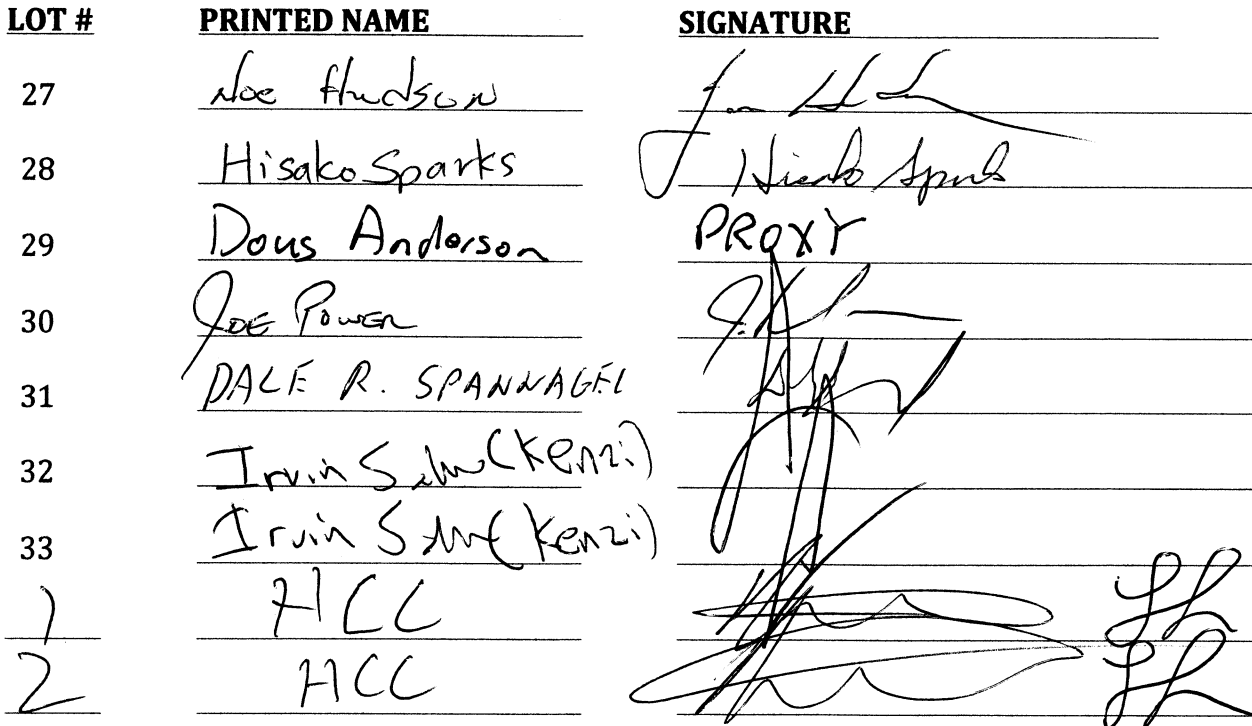 LOT # PRINTED NAME SIGNATURE
27 Noe Hudson
28 Hisako Sparks Hisako Sparks
29 Doug Anderson PROXY
30 Joe Power
31 DALE R. SPANNAGEL
32 Irvin (Kenzi)
33 Irvin (Kenzi)
1 HCC
2 HCC